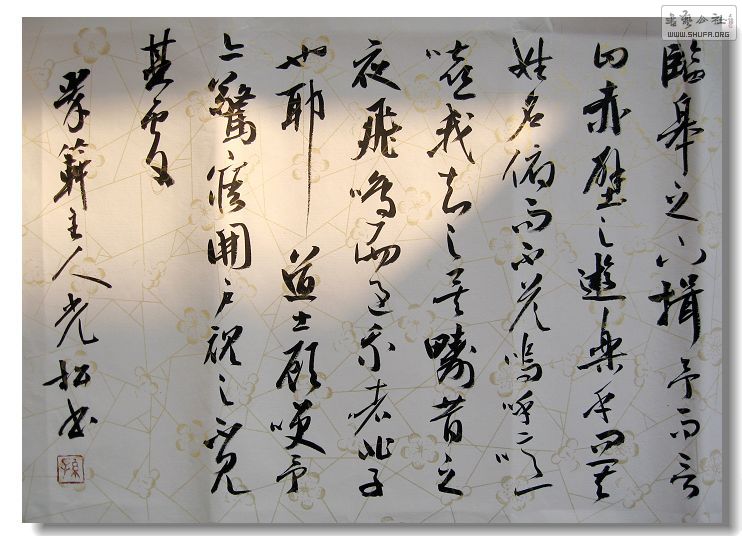 臨皋之下揖予而言
曰赤壁之遊樂乎問其
姓名俯而不答嗚呼噫
嘻我知之矣疇昔之
夜飛鳴而過我者非子
也耶道士顧笑予
亦驚寤開戶視之不見
其處
主人光松书
书艺公社
WWW.SHUFA.ORG